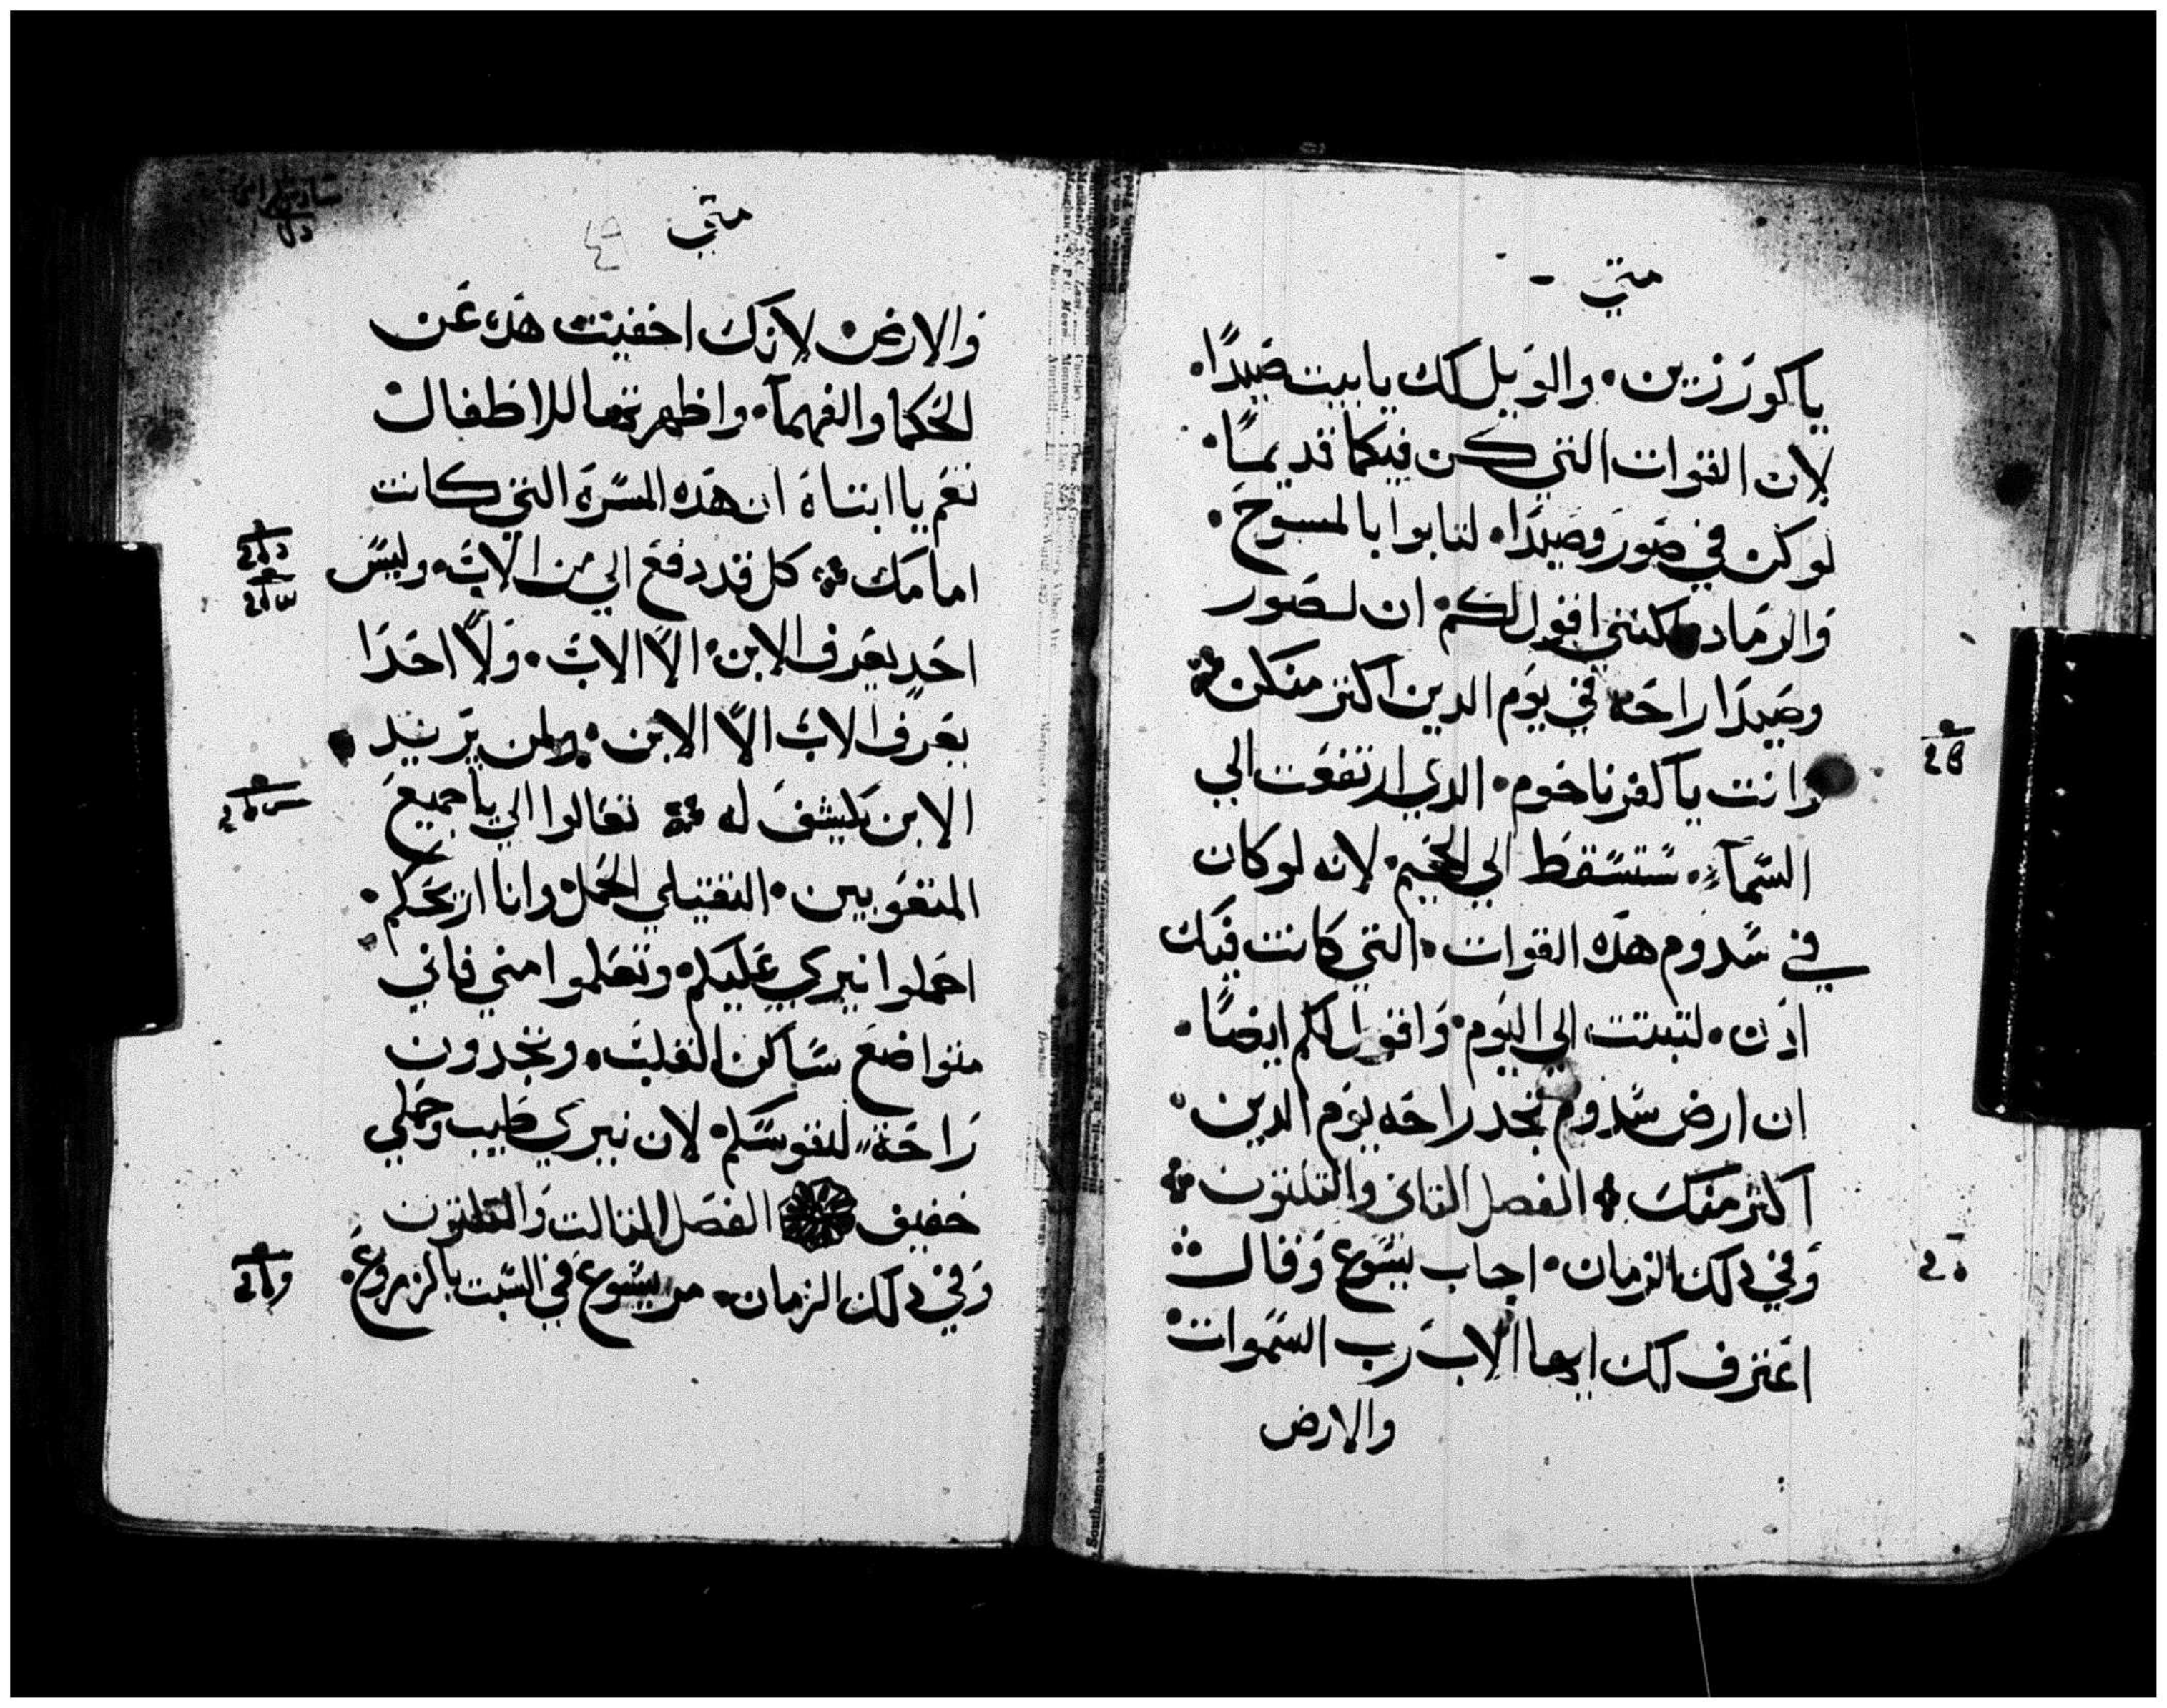 متي
يا كورزين٠ والويل لك يا بيت صيدًا٠
لان القوات التي كن فيكما قديمًا٠
لو كن في صور وصيدا٠ لتابوا بالمسوح٠
والرماد٠ لكنني اقول لكم٠ ان لصور
وصيدا راحه في يوم الدين اكتر منكن
وانت يا كفرناحوم٠ الدي ارتفعت الي
السمآء٠ ستسقط الي الجحيم٠ لانه لو كان
في سدوم هده القوات٠ التي كانت فيك
ادن٠ لتبتت الي اليوم٠ واقول لكم ايضًا٠
ان ارض سدوم تجد راحه يوم الدين٠
اكتر منك الفصل التاني والتلتون
وفي دلك الزمان٠ اجاب يسوع وقال
اعترف لك ايها الاب رب السموات
والارض
متي
٤٩
والارض٠ لانك اخفيت هده عن
الحكما والفهمآ٠ واظهرتها للاطفال
نعم يا ابتاه ان هده المسرة التي كانت
امامك كل قد دفع الي من الاب٠ وليس
احد يعرف الابن٠ الا الاب٠ ولا احدا
يعرف الاب الا الابن٠ ولمن يريد
الابن يكشف له تعالوا الي يا جميع
المتعوبين٠ التقيلي الحمل٠ وانا اريحكم٠
احملوا نيري عليكم٠ وتعلموا مني فاني
متواضع ساكن القلب٠ وتجدون
راحة لنفوسكم٠ لان نيري طيب وحملي
خفيف الفصل التالت والتلتون
وفي دلك الزمان٠ مر يسوع في السبت بالزروع٠